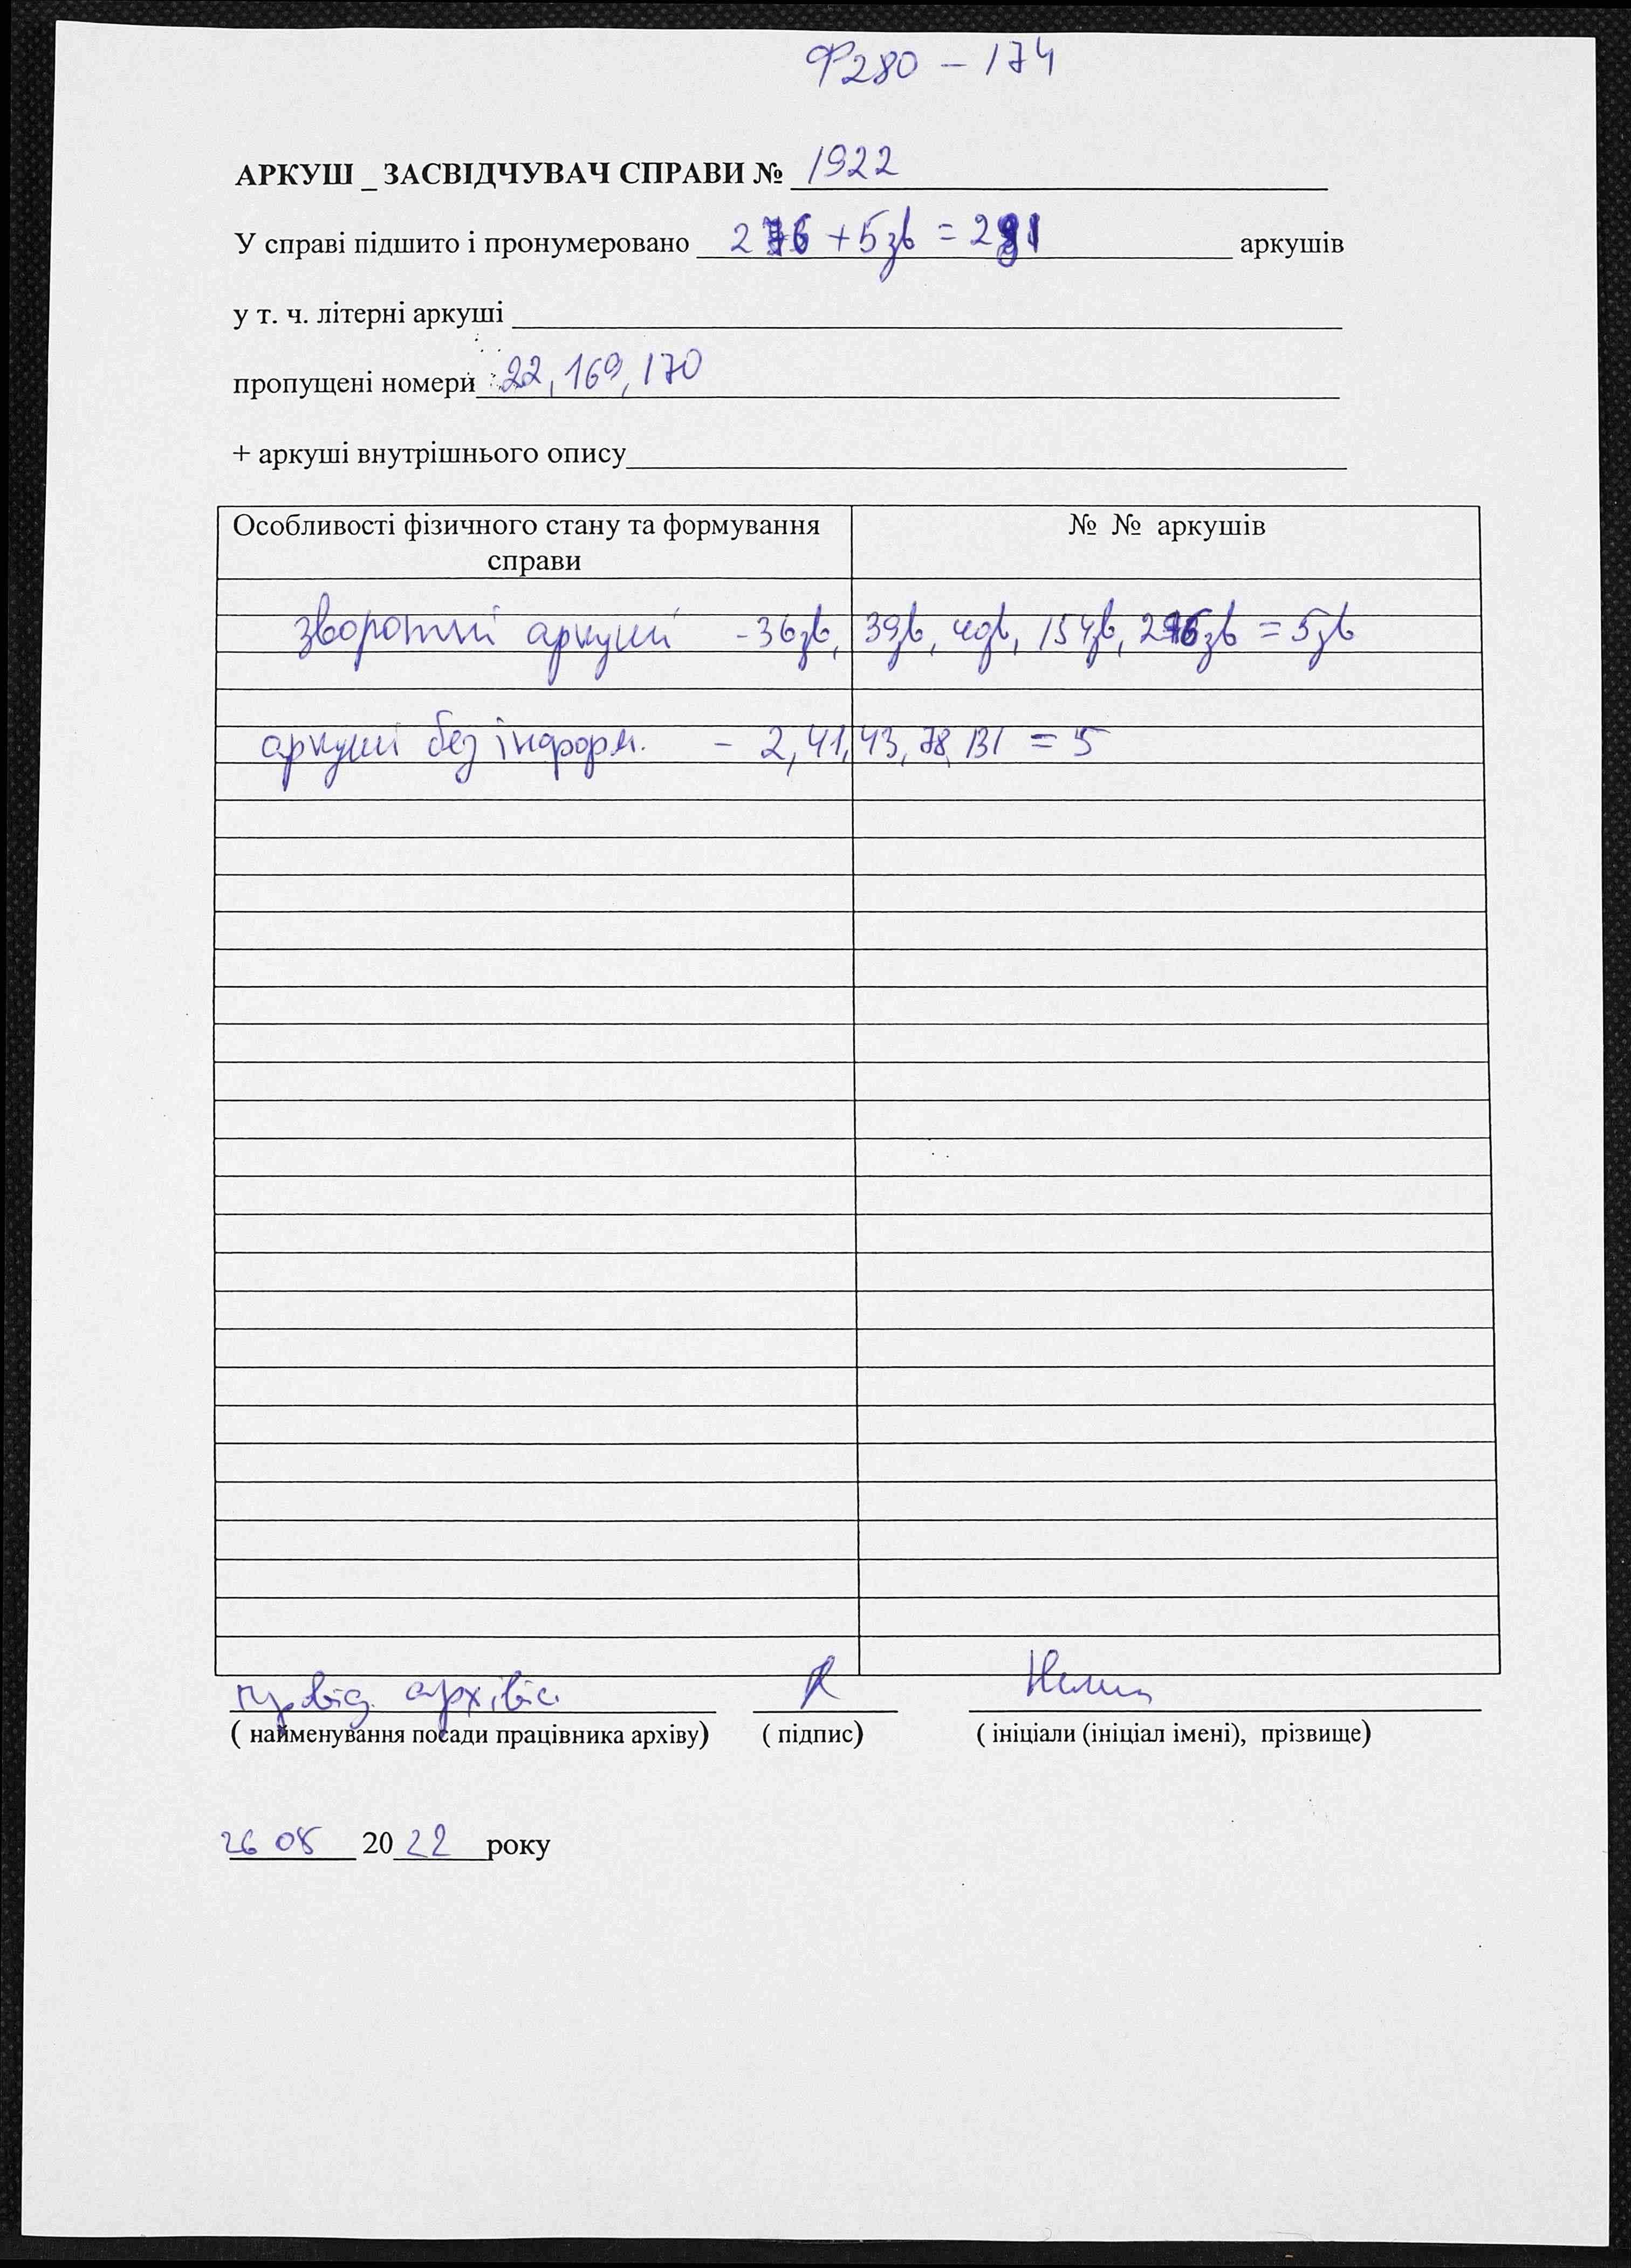 Ф280 – 174
АРКУШ _ ЗАСВІДЧУВАЧ СПРАВИ № 1922
У справі підшито і пронумеровано 276 + 5зв = 281 аркушів
у т. ч. літерні аркуші
пропущені номери 22, 169, 170
+ аркуші внутрішнього опису
Особливості фізичного стану та формування справи № № аркушів
зворотні аркуші - 36зв, 39зв, 40зв, 154зв, 276зв = 5зв
аркуші без інформ. – 2, 41, 43, 78, 131 = 5
провід. архівіс.
( найменування посади працівника архіву) ( підпис) ( ініціали (ініціал імені), прізвище)
26 08 2022 року